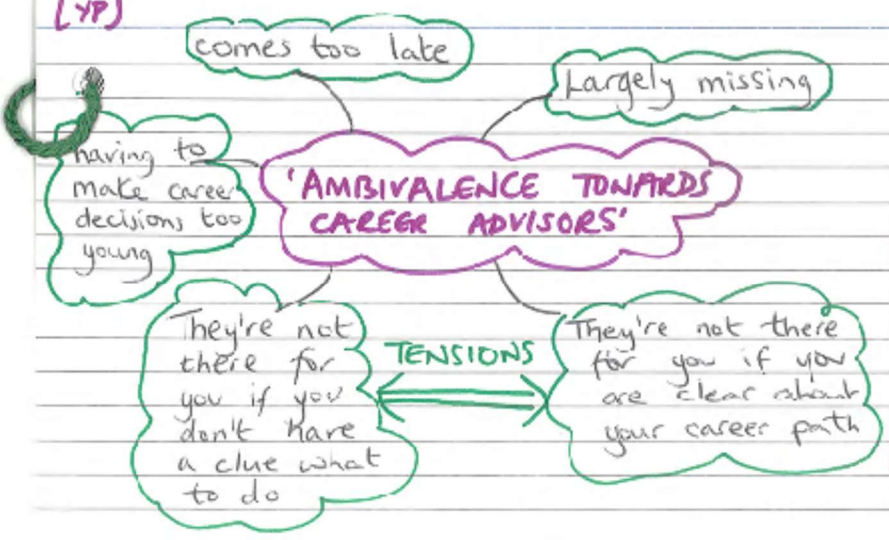 [YP]
comes too late
Largely missing
having to
make career
decisions too
young
'AMBIVALENCE TOWARDS
CAREER ADVISORS'
They're not
there for
you if you
don't have
a clue what
to do
TENSIONS
They're not there
for you if you
are clear about
your career path